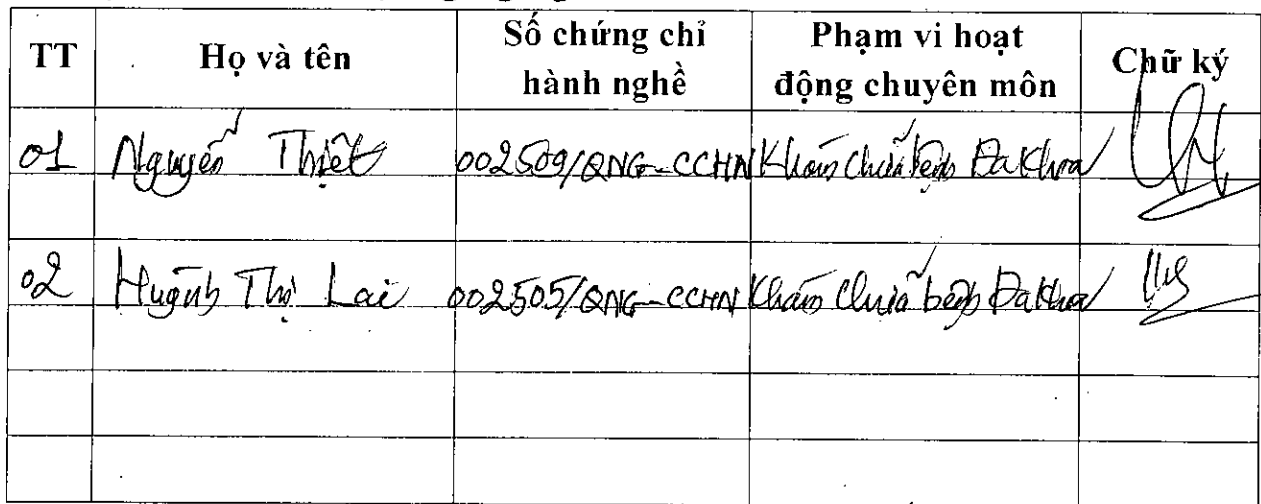 TT Họ và tên Số chứng chỉ hành nghề Phạm vi hoạt động chuyên môn Chữ ký
01 Nguyễn Thiệt 002509/QNG-CCHN Khám chữa bệnh Đa khoa
02 Huỳnh Thị Lai 002505/QNG-CCHN Khám chữa bệnh Đa khoa